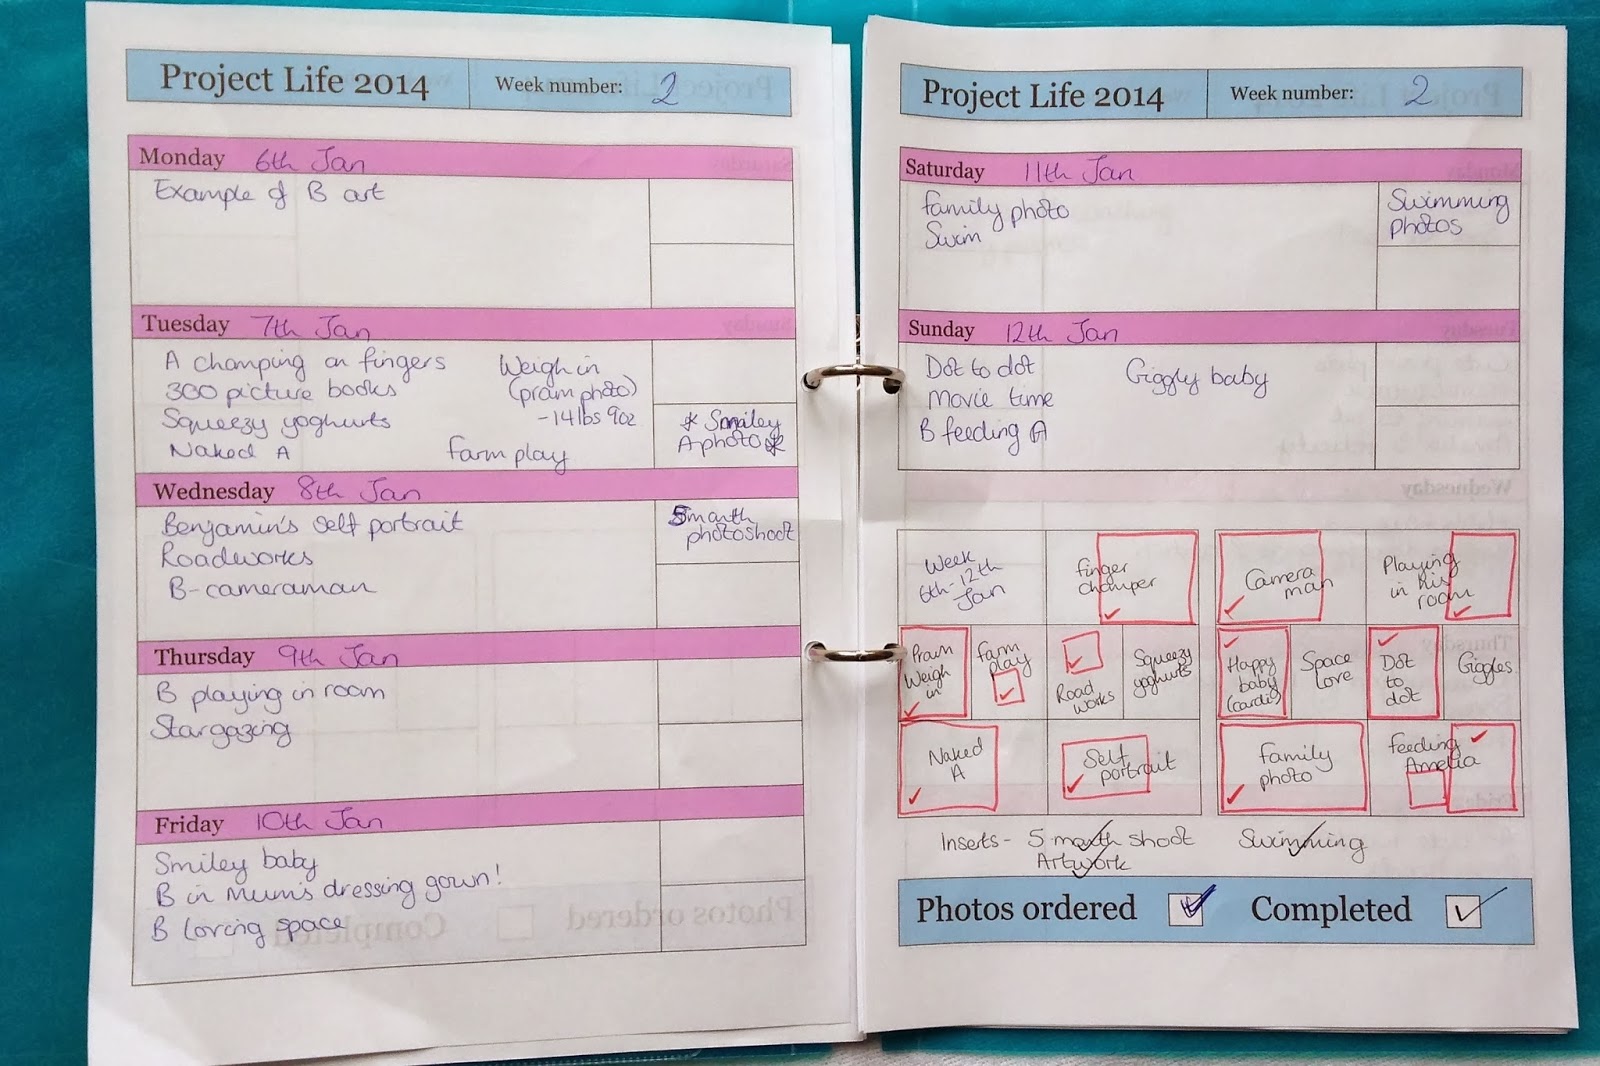 Project Life 2014 Week number: 2
Monday 6th Jan
Example of B art
Tuesday 7th Jan
A chomping on fingers
300 picture books
Squeezy yoghurts
Naked A
Weigh in
(pram photo)
-14lbs 9oz
Farm play
* Smiley
A photo *
Wednesday 8th Jan
Benjamin's self portrait
Roadworks
B-cameraman
5 month
photoshoot
Thursday 9th Jan
B playing in room
Stargazing
Friday 10th Jan
Smiley baby
B in Mum's dressing gown!
B loving space
Project Life 2014 Week number: 2
Saturday 11th Jan
Family photo
Swim
Swimming
photos
Sunday 12th Jan
Dot to dot
Movie time
B feeding A
Giggly baby
Week
6th-12th
Jan
Finger
chomper
Camera
man
Playing
in his
room
Pram
Weigh
in
Farm
play
Road
works
Squeezy
yoghurts
Happy
baby
(cardis)
Space
Love
Dot
to
dot
Giggles
Naked
A
Self
portrait
Family
photo
Feeding
Amelia
Inserts - 5 month shoot Swimming
Artwork
Photos ordered Completed